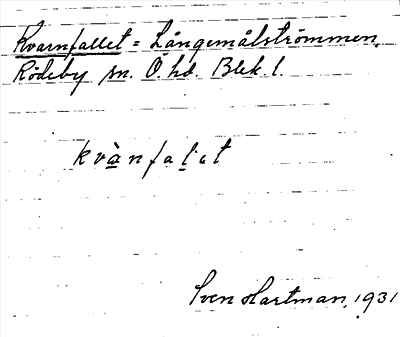 Kvarnfallet = Långemålströmmen.
Rödeby sn. Ö. hd. Blek. l.
kvànfalat
Sven Hartman, 1931